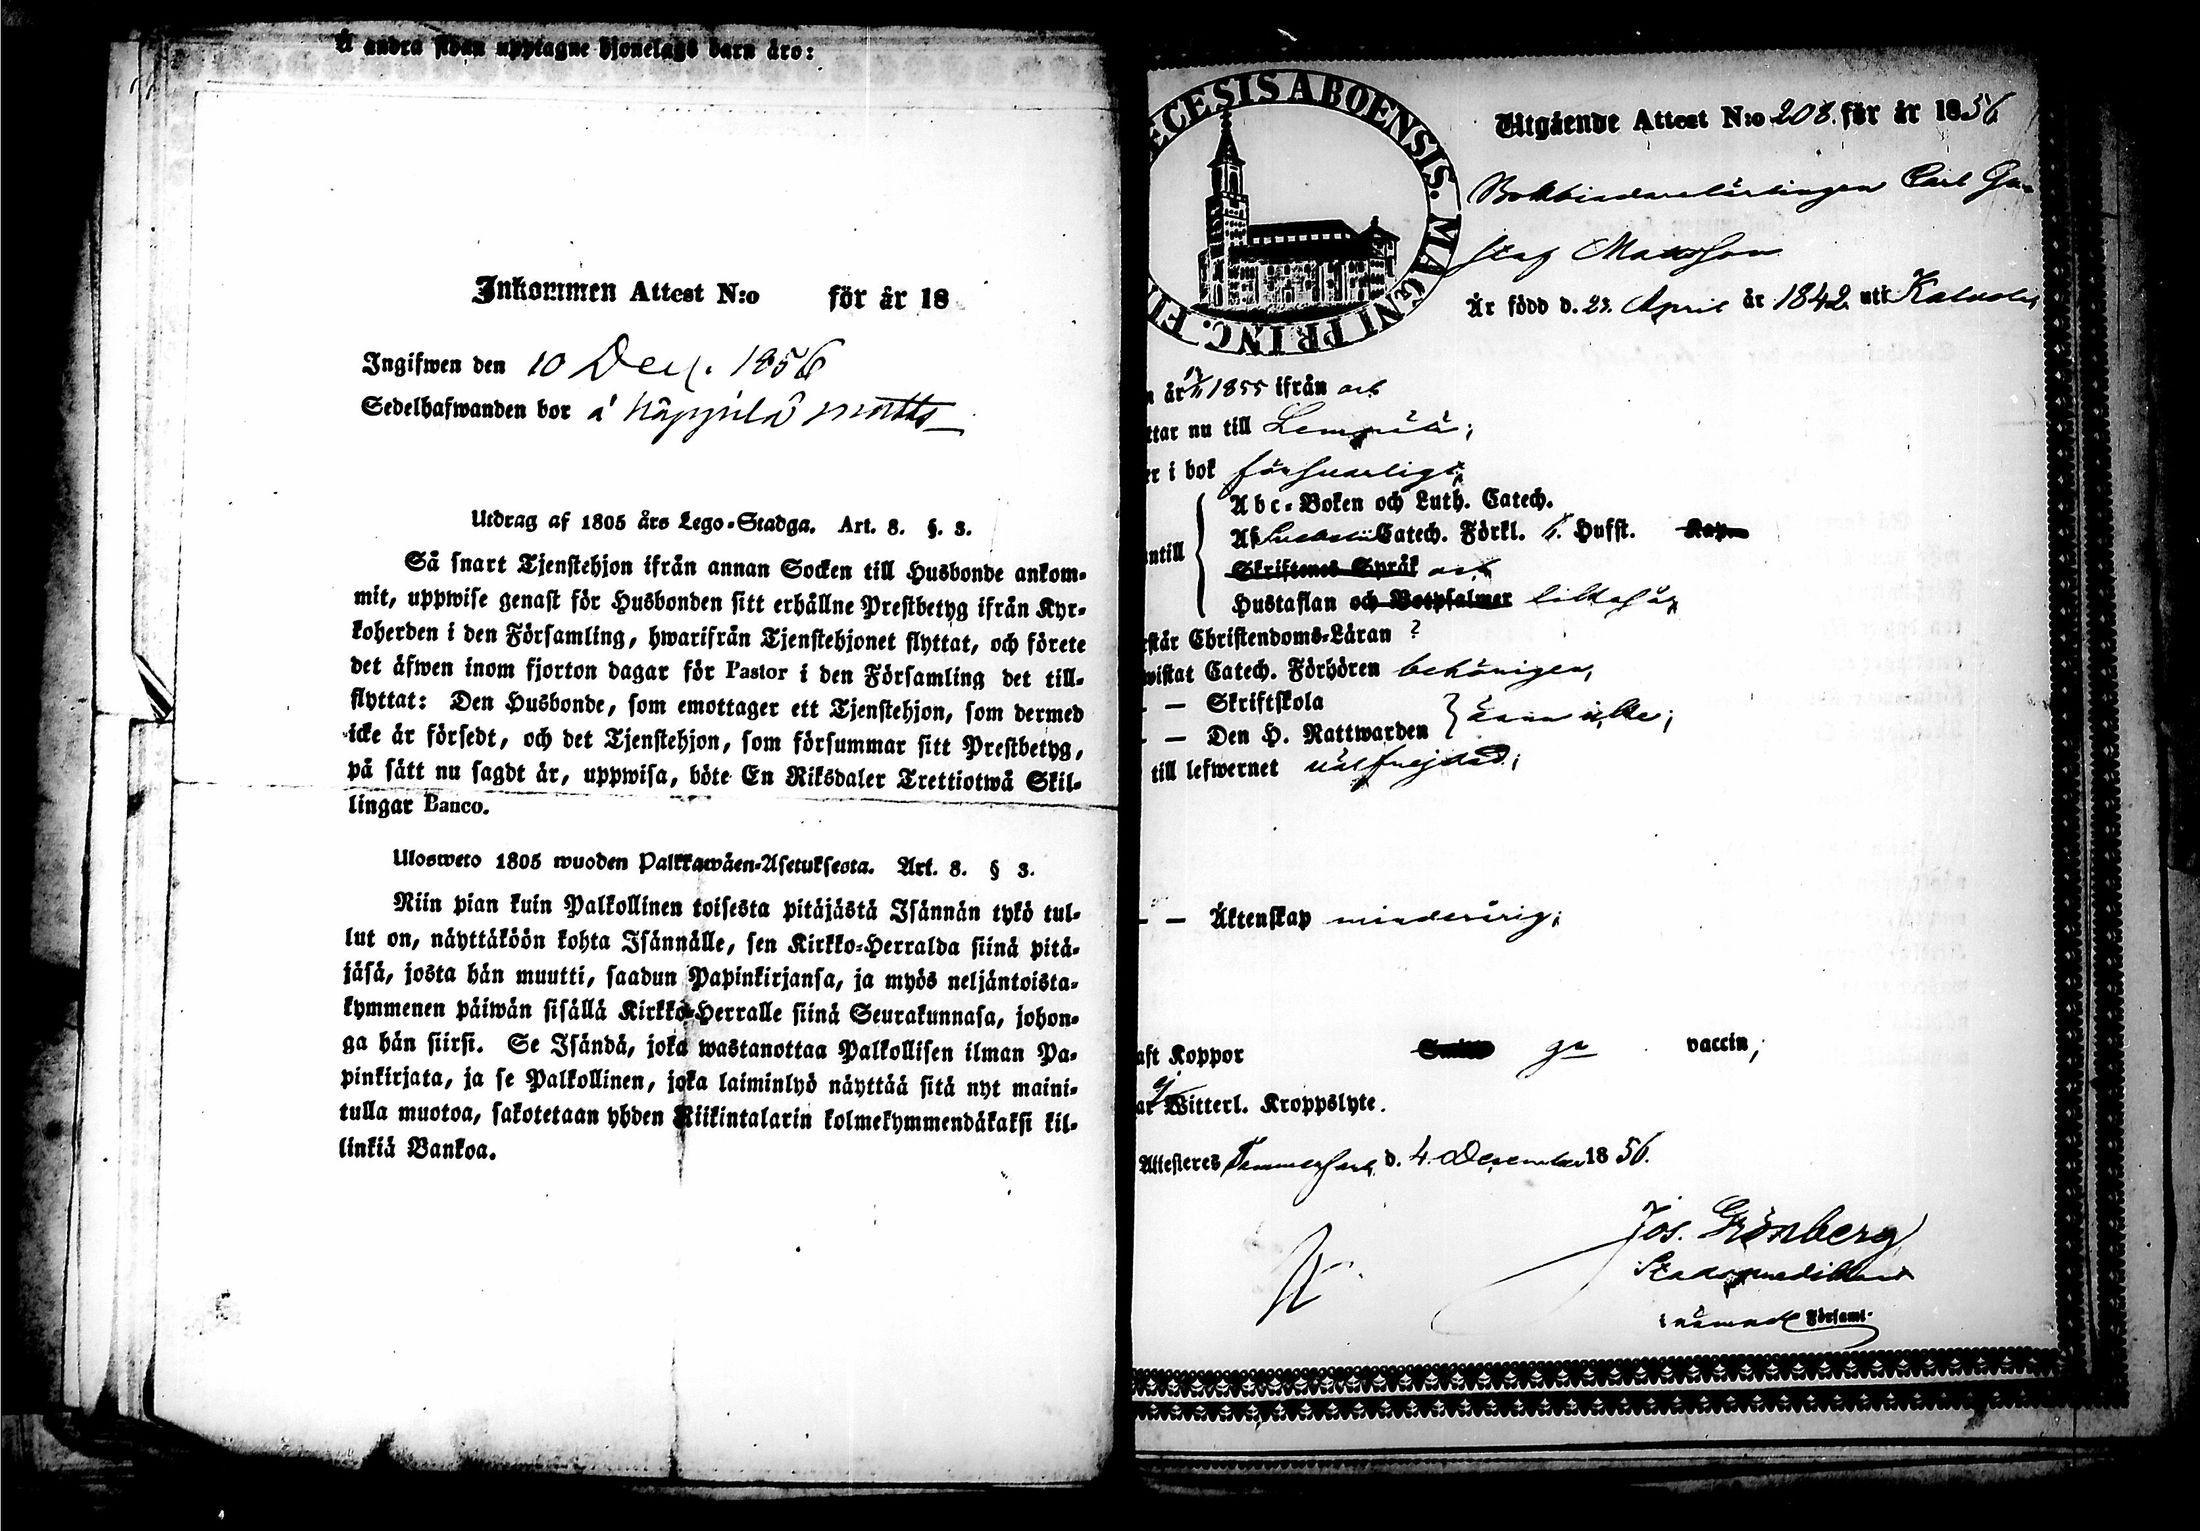 Å andra sidan upptagne hjonelags barn äro:
Inkommen Attest N:o för år 18
Ingifwen den 10 Dec. 1856
Sedelhafwanden bor å Näppilä matts
Utdrag af 1805 års Lego-Stadga. Art. 8. §. 3.
Så snart Tjenstehjon ifrån annan Socken till Husbonde ankom-
mit, uppwise genast för Husbonden sitt erhållne Prestbetyg ifrån Kyr-
koherden i den Församling, hwarifrån Tjenstehjonet flyttat, och förete
det äfwen inom fjorton dagar för Pastor i den Församling det till-
flyttat: Den Husbonde, som emottager ett Tjenstehjon, som dermed
icke är försedt, och det Tjenstehjon, som försummar sitt Prestbetyg,
på sätt nu sagdt är, uppwisa, böte En Riksdaler Trettiotwå Skil-
lingar Banco.
Ulosweto 1805 wuoden Palkkawäen-Asetuksesta. Art. 8. § 3.
Niin pian kuin Palkollinen toisesta pitäjästä Isännän tykö tul-
lut on, näyttäköön kohta Isännälle, sen Kirkko-Herralda siinä pitä-
jäsä, josta hän muutti, saadun Papinkirjansa, ja myös neljäntoista-
kymmenen päiwän sisällä Kirkko-Herralle siinä Seurakunnasa, johon-
ga hän siirsi. Se Isändä, joka wastanottaa Palkollisen ilman Pa-
pinkirjata, ja se Palkollinen, joka laiminlyö näyttää sitä nyt maini-
tulla muotoa, sakotetaan yhden Riikintalarin kolmekymmendäkaksi kil-
linkiä Bankoa.
ECESIS ABOENSIS. MAGNI PRINC. FI
Utgående Attest N:o 208. för år 1856
Bokbindarelärlingen Carl Gu-
staf Mattsson
Är född d. 23. April år 1842 uti Kalvola,
n år 1855 ifrån ort
ttar nu till Lempää;
er i bok försvarligt;
Abc-Boken och Luth. Catech.
Af Catech. Förkl. 1. Hufst.
ntill
Skriftenes Språk
Hustaflan och Botpsalmer likaså;
rstår Christendoms-Läran ?
wistat Catech. Förhören behörigen,
- - Skriftskola
- - Den H. Nattwarden ännu icke;
till lefwernet välfrejdad;
- - Äktenskap minderårig;
aft Koppor ga vaccin;
ej
ar Witterl. Kroppslyte.
Attesteres Tammerfors d. 4. December 1856.
Jos. Grönberg
Stadspredikant
i nämnde Församl.